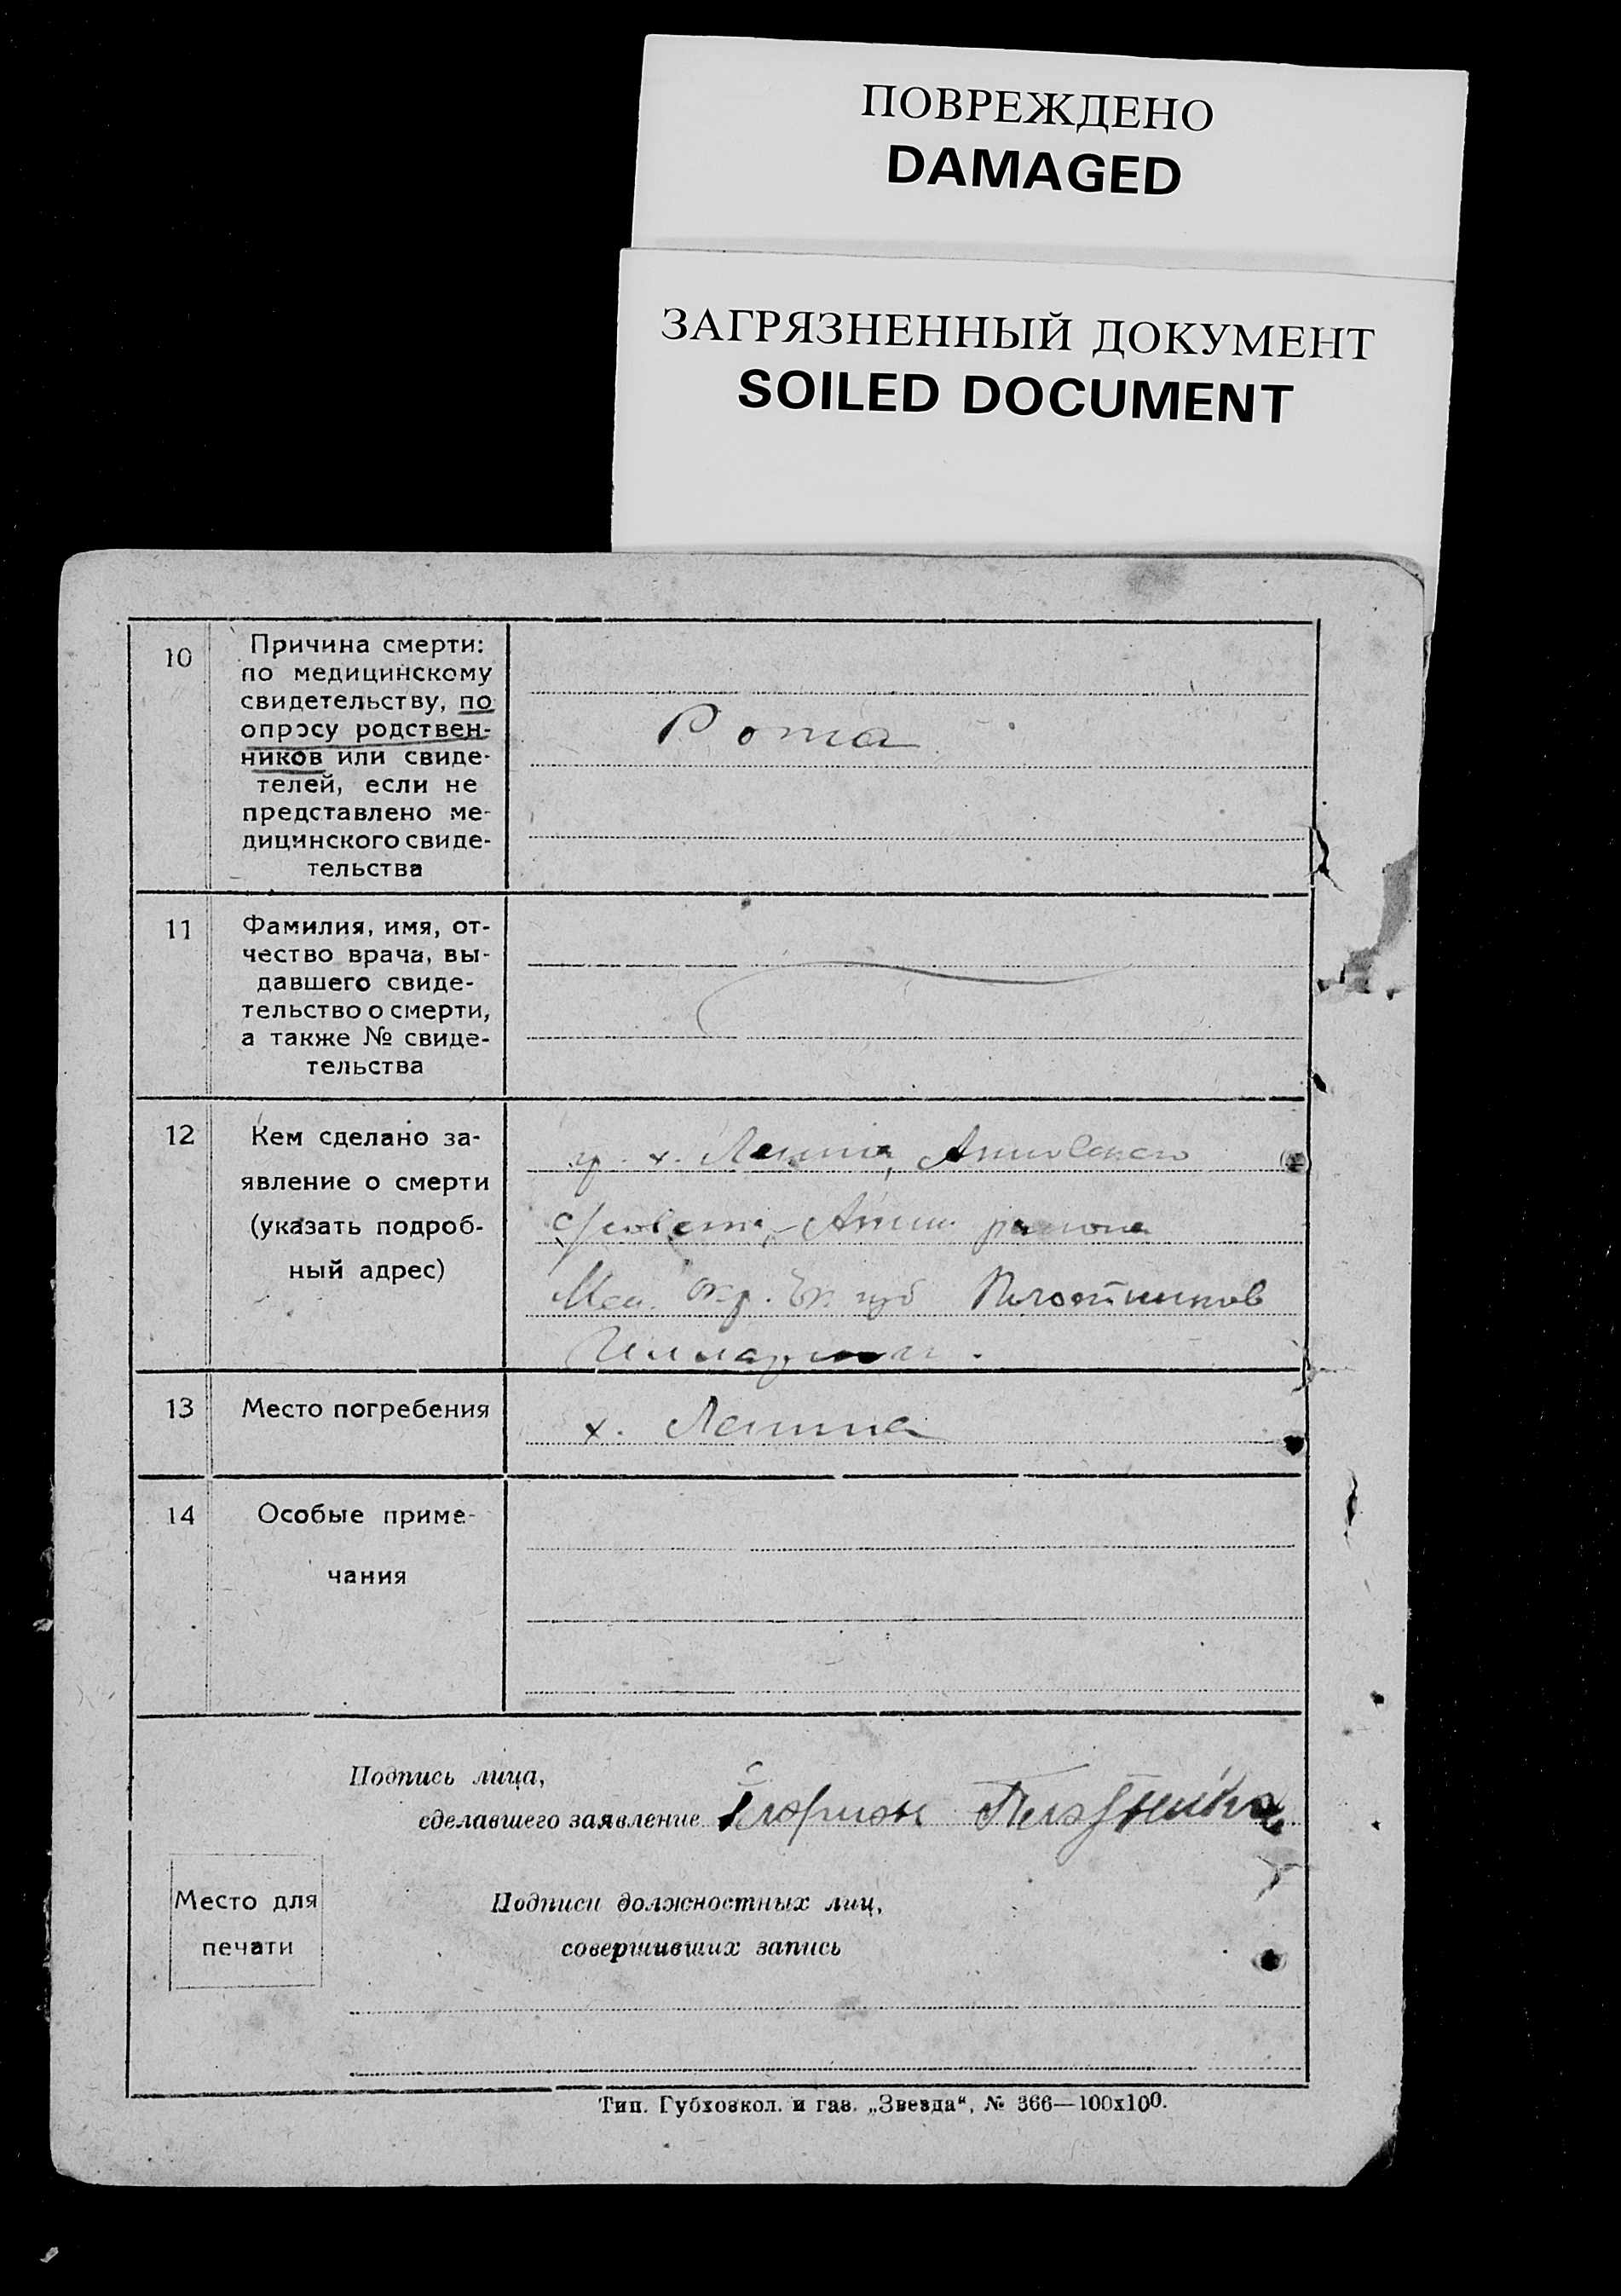 ПОВРЕЖДЕНО
DAMAGED
ЗАГРЯЗНЕННЫЙ ДОКУМЕНТ
SOILED DOCUMENT
10
Причина смерти:
по медицинскому
свидетельству, по
опросу родствен-
ников или свиде-
телей, если не
представлено ме-
дицинского свиде-
тельства
Рота
11
Фамилия, имя, от-
чество врача, вы-
давшего свиде-
тельство о смерти,
а также № свиде-
тельства
12
Кем сделано за-
явление о смерти
(указать подроб-
ный адрес)
гр. х. Ленина,
с/совета, района
окр. Плотников
13
Место погребения
х. Ленина
14
Особые приме-
чания
Подпись лица,
сделавшего заявление
Место для
печати
Подписи должностных лиц,
совершивших запись
Тип. Губхозкол. и газ. „Звезда“, № 366—100х100.